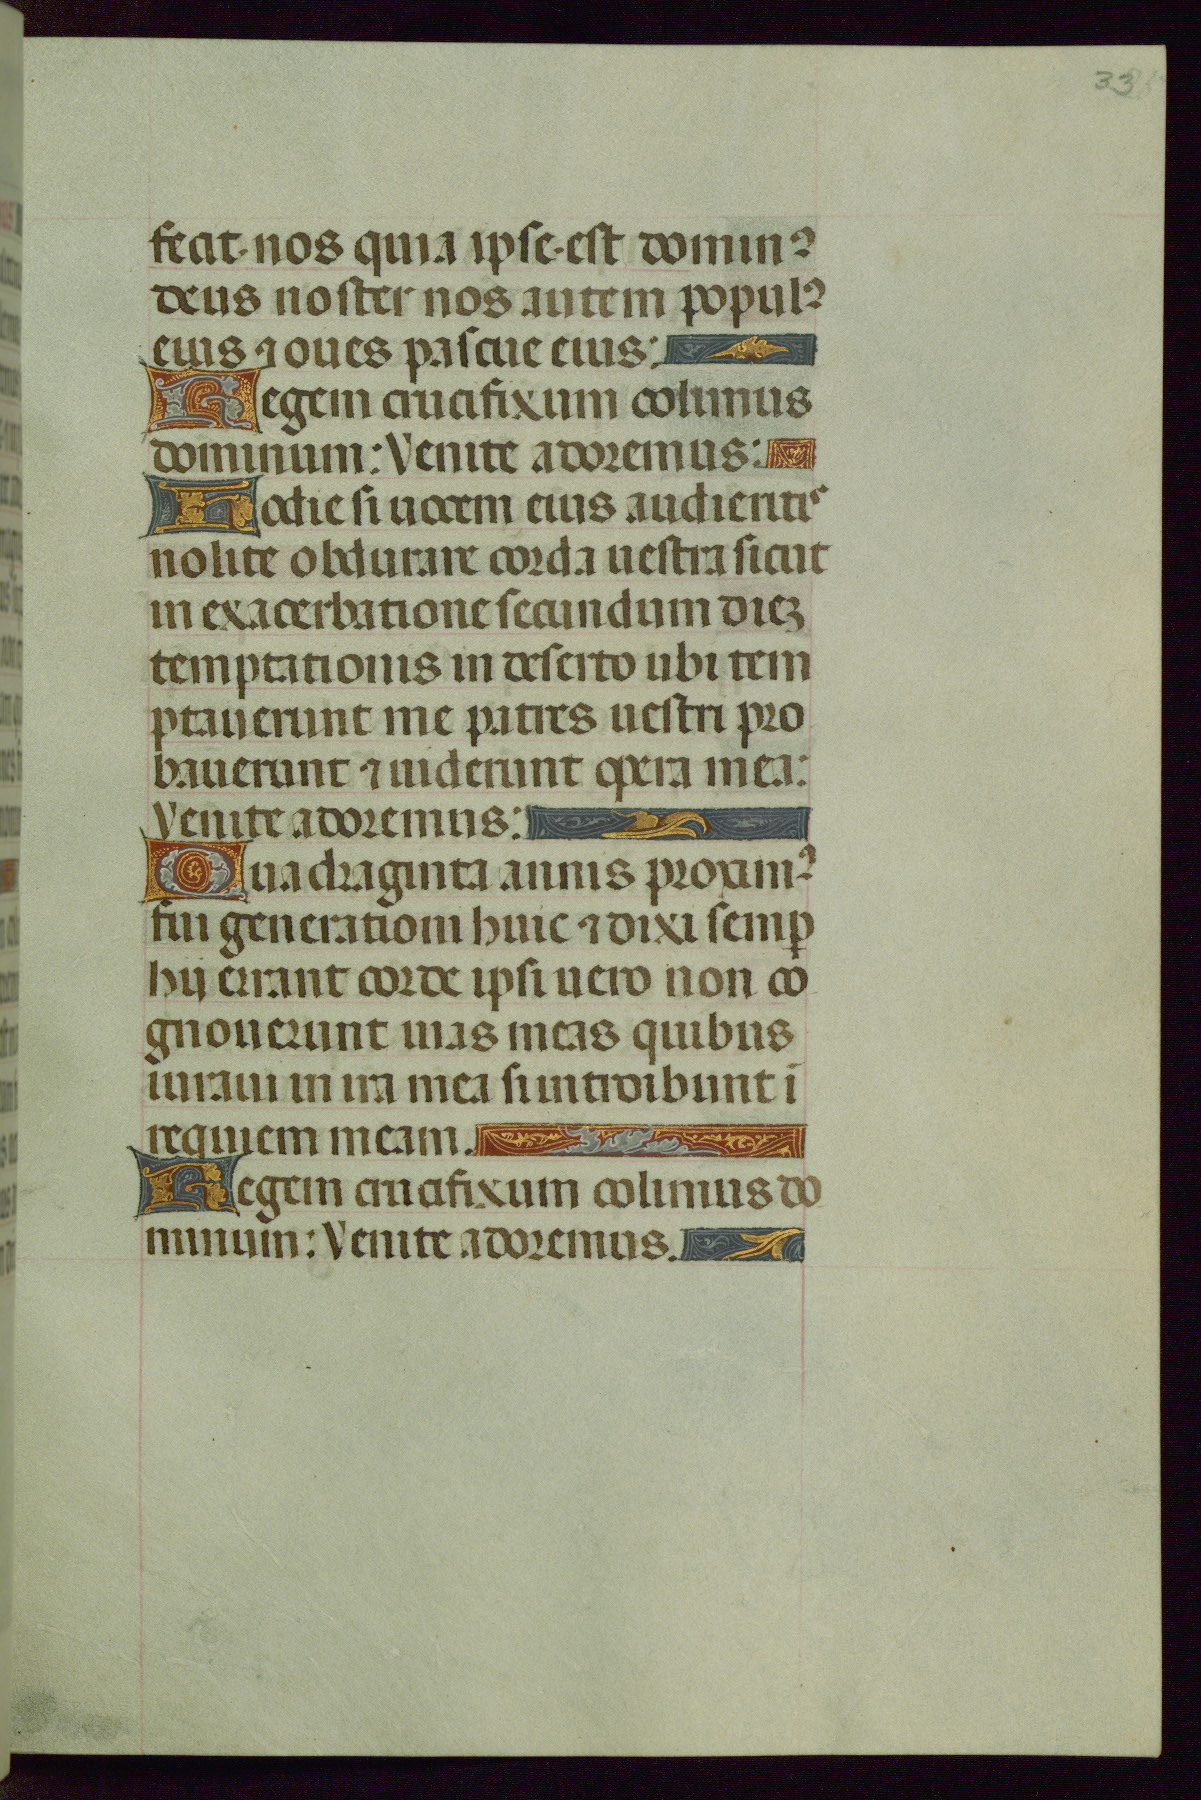 33
fecit·nos quia ipse·est dominꝰ
deus noster nos autem populꝰ
eius ⁊ oues pascue eius:
Regem crucifixum colimus
dominum: Venite adoremus:
Hodie si uocem eius audieritis
nolite obdurare corda uestra sicut
in exacerbatione secundum dieꝫ
temptationis in deserto ubi tem
ptauerunt me patres uestri pro
bauerunt ⁊ uiderunt opera mea:
Venite adoremus:
Quadraginta annis proximꝰ
fui generationi huic ⁊ dixi semꝑ
hij errant corde ipsi uero non co
gnouerunt uias meas quibus
iuraui in ira mea si introibunt ī
requiem meam.
Regem crucifixum colimus do
minum: Venite adoremus.